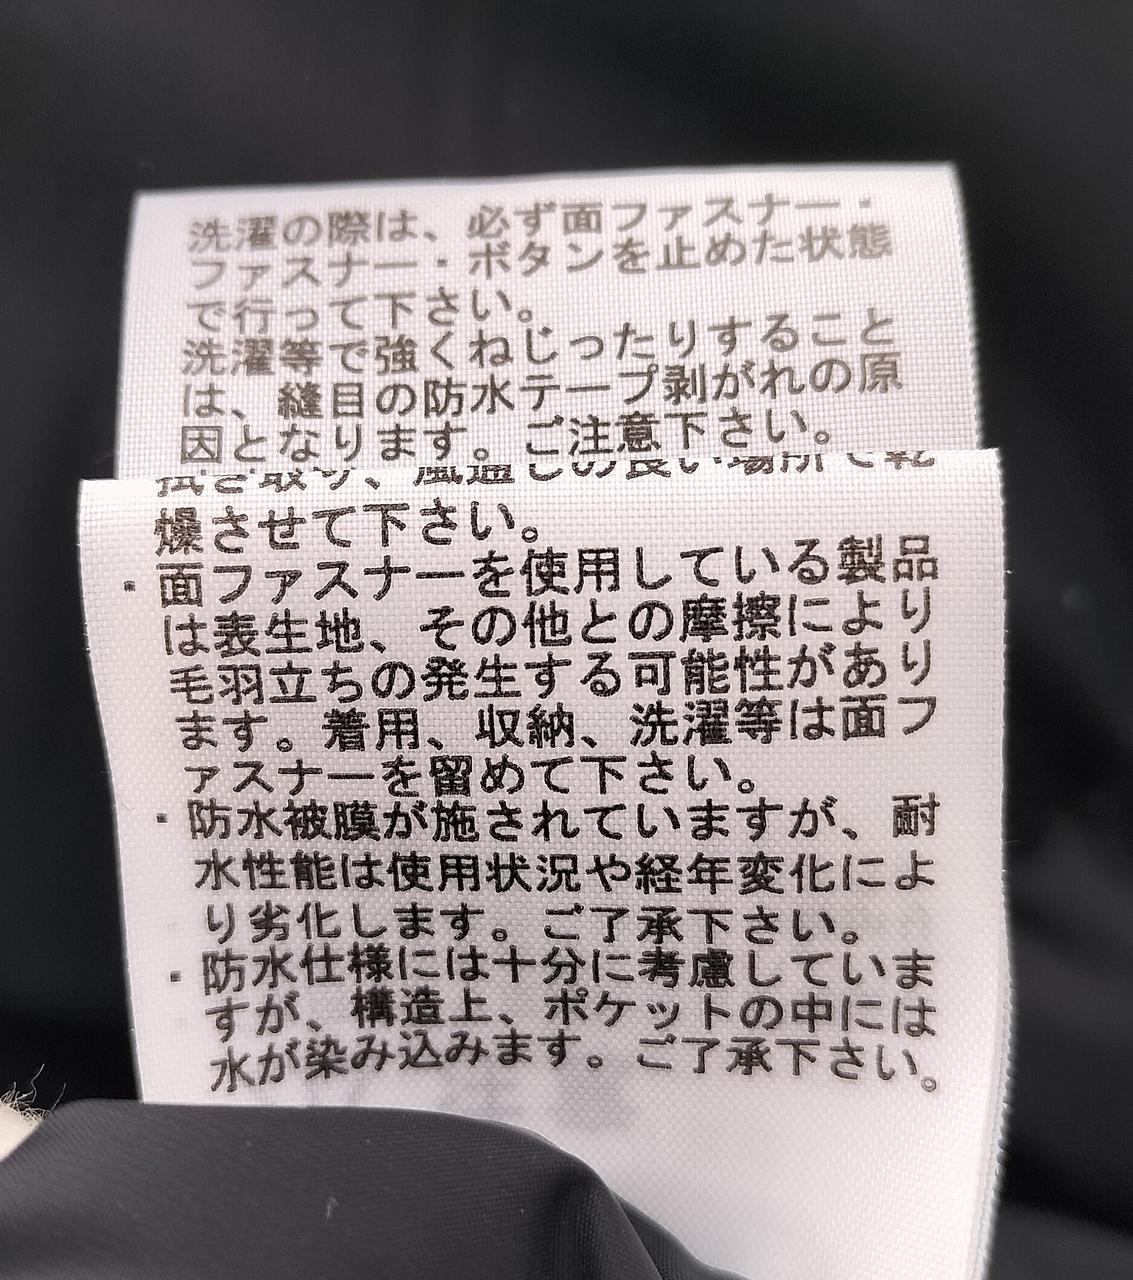 洗濯の際は、必ず面ファスナー・
ファスナー・ボタンを止めた状態
で行って下さい。
洗濯等で強くねじったりすること
は、縫目の防水テープ剥がれの原
因となります。ご注意下さい。
拭き取り、風通しの良い場所で乾
燥させて下さい。
・面ファスナーを使用している製品
は表生地、その他との摩擦により
毛羽立ちの発生する可能性があり
ます。着用、収納、洗濯等は面フ
ァスナーを留めて下さい。
・防水被膜が施されていますが、耐
水性能は使用状況や経年変化によ
り劣化します。ご了承下さい。
・防水仕様には十分に考慮していま
すが、構造上、ポケットの中には
水が染み込みます。ご了承下さい。